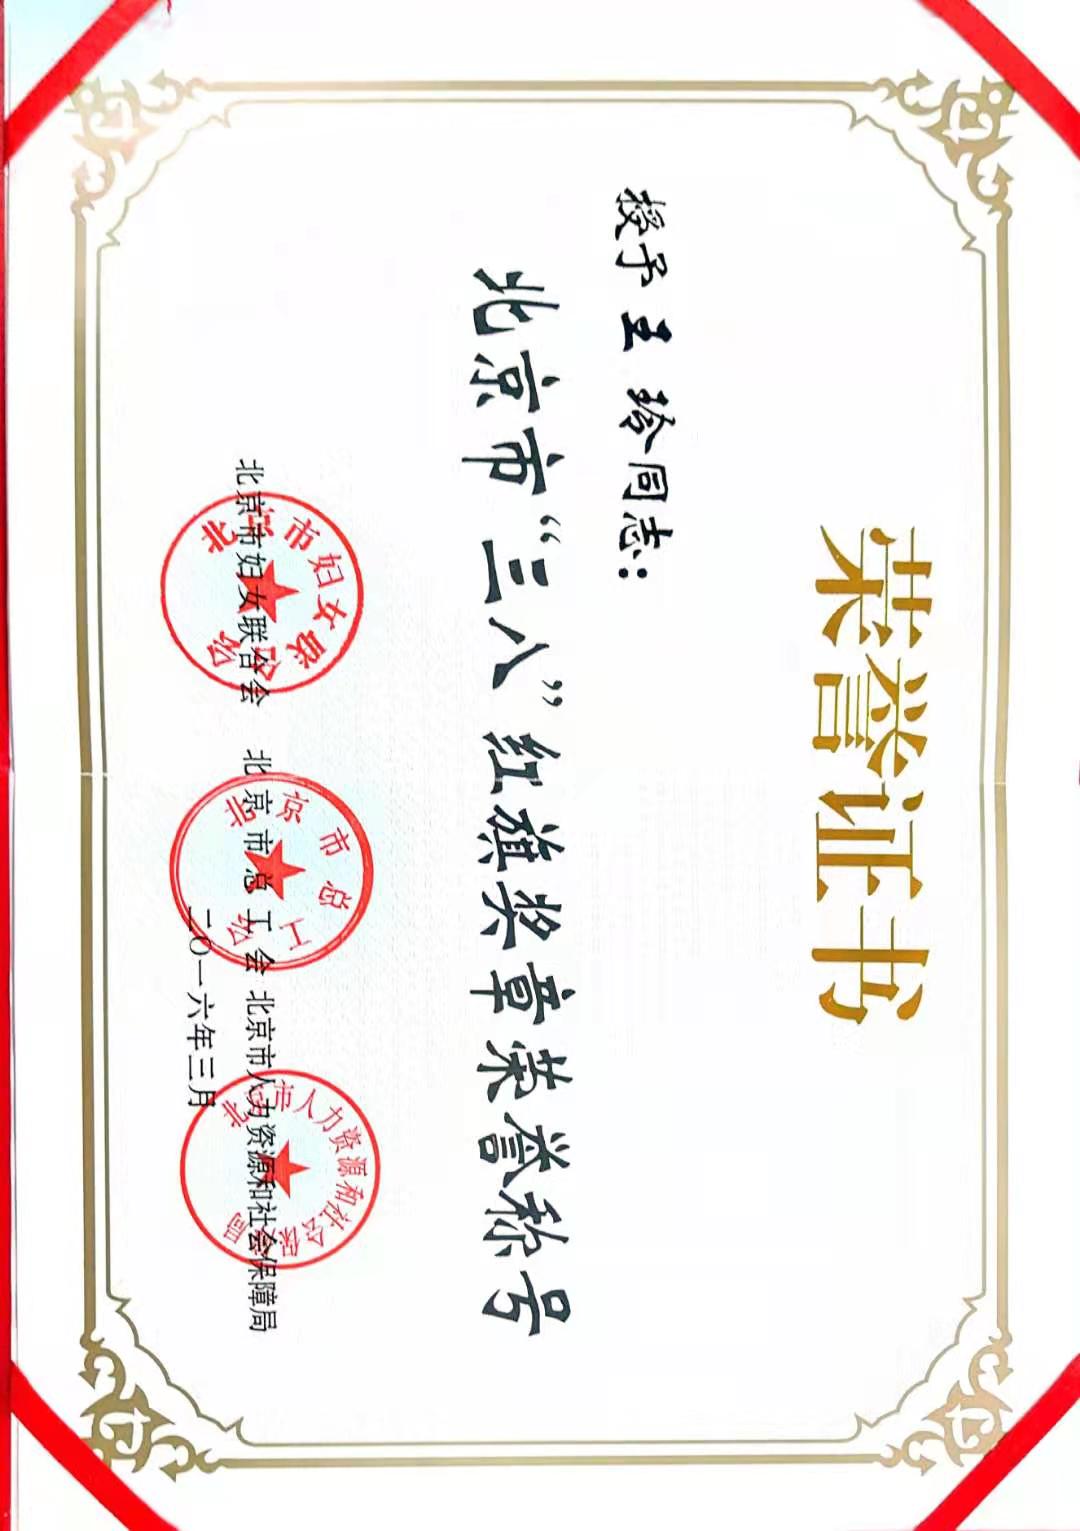 荣誉证书
授予 王 玲同志：
北京市“三八”红旗奖章荣誉称号
北京市妇女联合会 北京市总工会 北京市人力资源和社会保障局
二〇一六年三月
北京市妇女联合会
北京市总工会
北京市人力资源和社会保障局